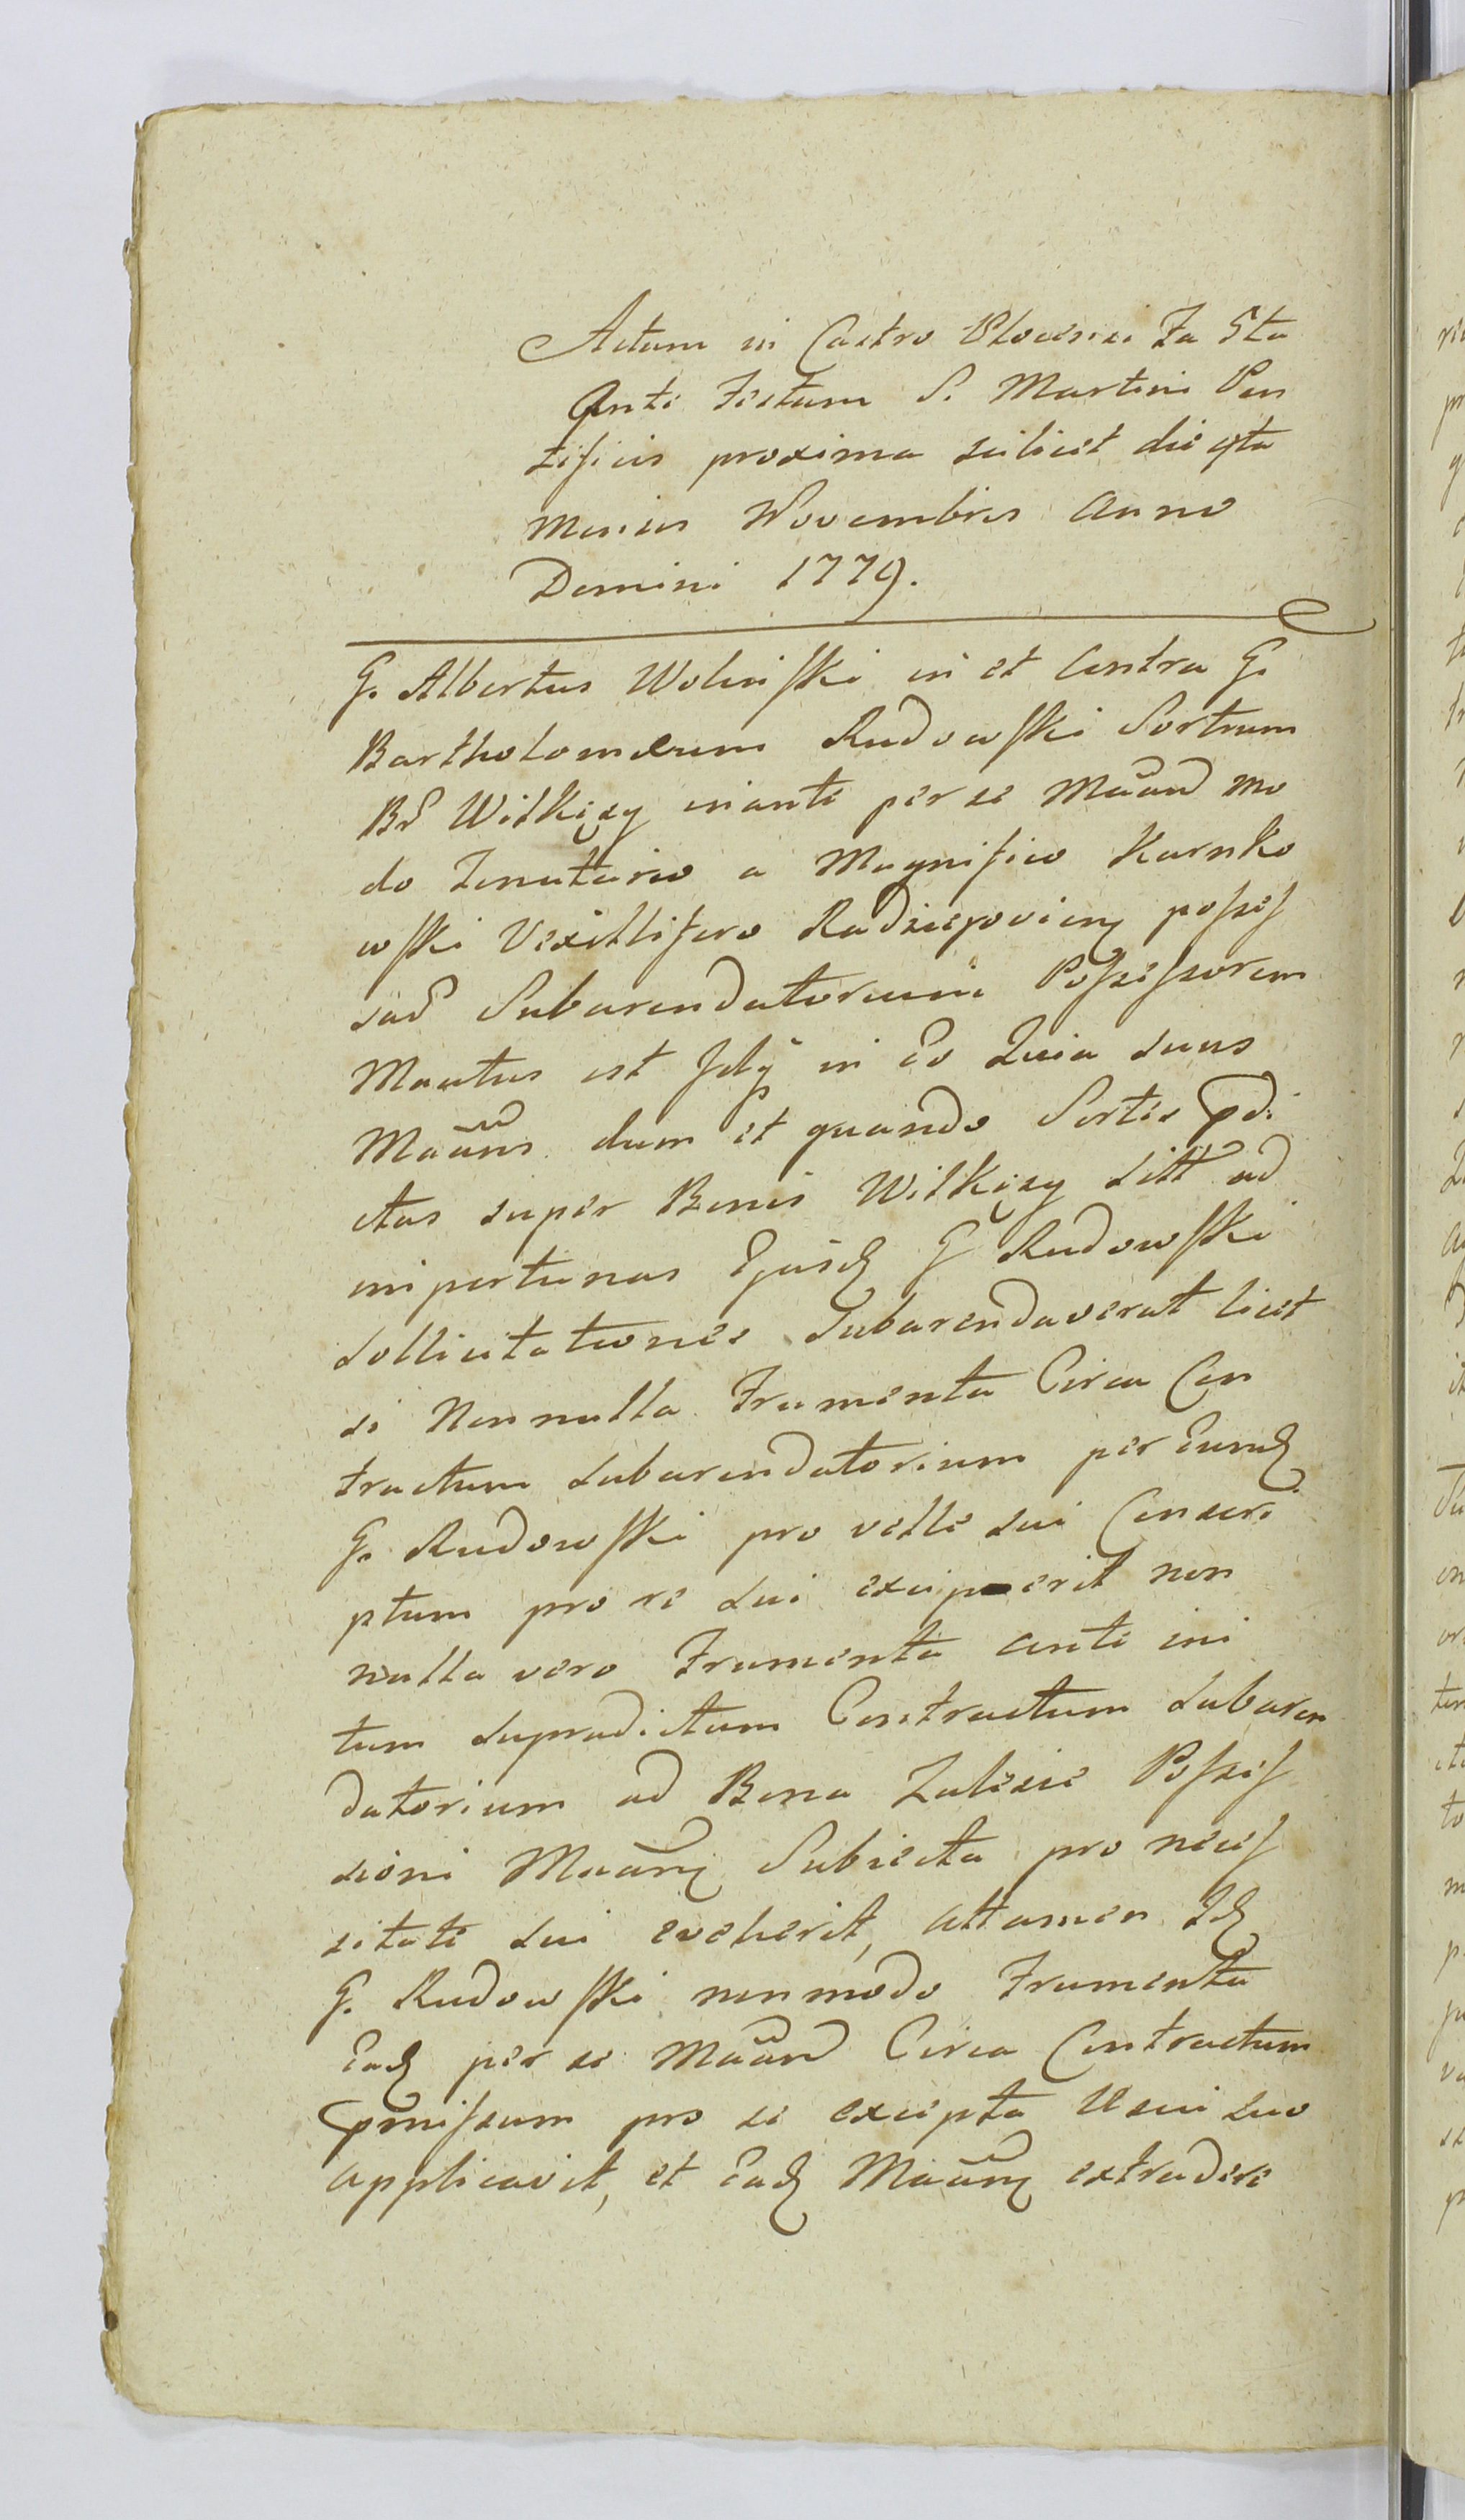 Actum in Castro Plocensi Fa 5ta
Ante Festum S. Martini Pon
tificis proxima scilicet die 4ta
Mensis Novembris Anno
Domini 1779.
G. Albertus Wolinski in et Contra G.
Bartholomæum Rudowski Sortium
Bd Wilkęsy inante per se Maãnd mo
do Tenutario a Magnifico Karnko
wski Vexillifero Radziejovien possess
sad Subarendatorium Possessorem
Maatus est in Eo Quia suus
Maãns dum et quando Sortes pdi
ctas super Bonis Wilkęsy sitt ad
importunas Ejusd G Rudowski
sollicitationes Subarendaverat licet
si Nonnulla Frumenta Circa Con
tractum subarendatorium per Eund
G. Rudowski pro velle sui Conscri
ptum pro re sui exciperit non
nulla vero Frumenta ante ini
tum supradictum Contractum subaren
datorium ad Bona Zalesie Possess
sioni Maãns Subiecta pro necess
sitate sui eveherit, attamen Id
G. Rudowski nonmodo Frumenta
Ead per se Maãnd Circa Contractum
pmissum pro se excepta Usui suo
applicavit, et Ead Maãns extradere